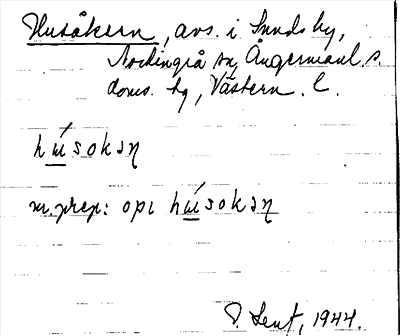 Husåkern, avs. i Sunds by,
Nordingrå sn, Ångermanl. s.
doms. hg, Västern. l.
hú̲sokəꞃ
m. prep: opɩ hú̲sokəꞃ
1944.